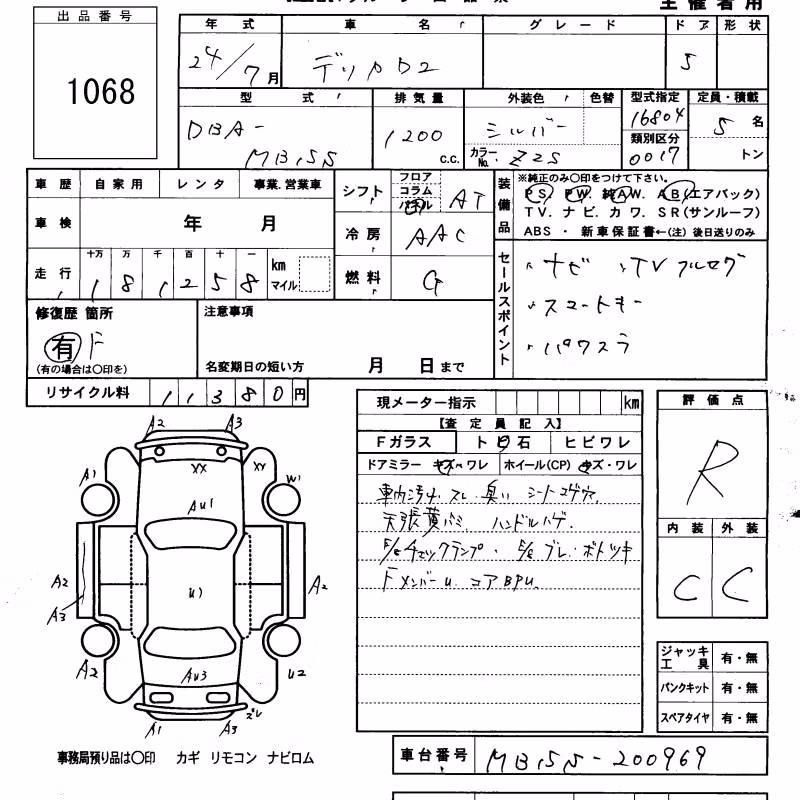 出品番号
1068
年式 車名 グレード ドア 形状
24/7月 デリカD2 5
型式 排気量 外装色 色替 型式指定 定員・積載
DBA- MB15S 1200 c.c. シルバー カラーNo. Z2S 16804 類別区分 0017 5名 トン
車歴 自家用 レンタ 事業.営業車
シフト フロア コラム パネル AT
装備品 ※純正のみ〇印をつけて下さい。
PS. PW. 純AW. AB(エアバック)
TV. ナビ. カワ. SR(サンルーフ)
ABS ・ 新車保証書←(注) 後日送りのみ
車検 年 月
冷房 AAC
走行 十万 万 千 百 十 一 km マイル
1 8 1 2 5 8
燃料 G
セールスポイント
ナビ、TVフルセグ
スマートキー
パワスラ
修復歴 箇所
有 F
(有の場合は〇印を)
注意事項
名変期日の短い方 月 日まで
リサイクル料 11380円
現メーター指示 km
【査定員記入】
Fガラス トビ石 ヒビワレ
ドアミラー キズ・ワレ ホイール(CP) キズ・ワレ
車内汚レ スレ 臭い シートコゲ穴
天張黄バミ ハンドルハゲ.
E/gチェックランプ・ E/gブレ・ボトツキ
FメンバーU. コアBPU.
評価点
R
内装 外装
C C
A2 A3
XX XY
A1 W1
AU1
A2 A3 U1 A2
A2 U2
AU3
ズレ
A1 A3
ジャッキ工具 有・無
パンクキット 有・無
スペアタイヤ 有・無
事務局預り品は〇印 カギ リモコン ナビロム
車台番号 MB15S-200969